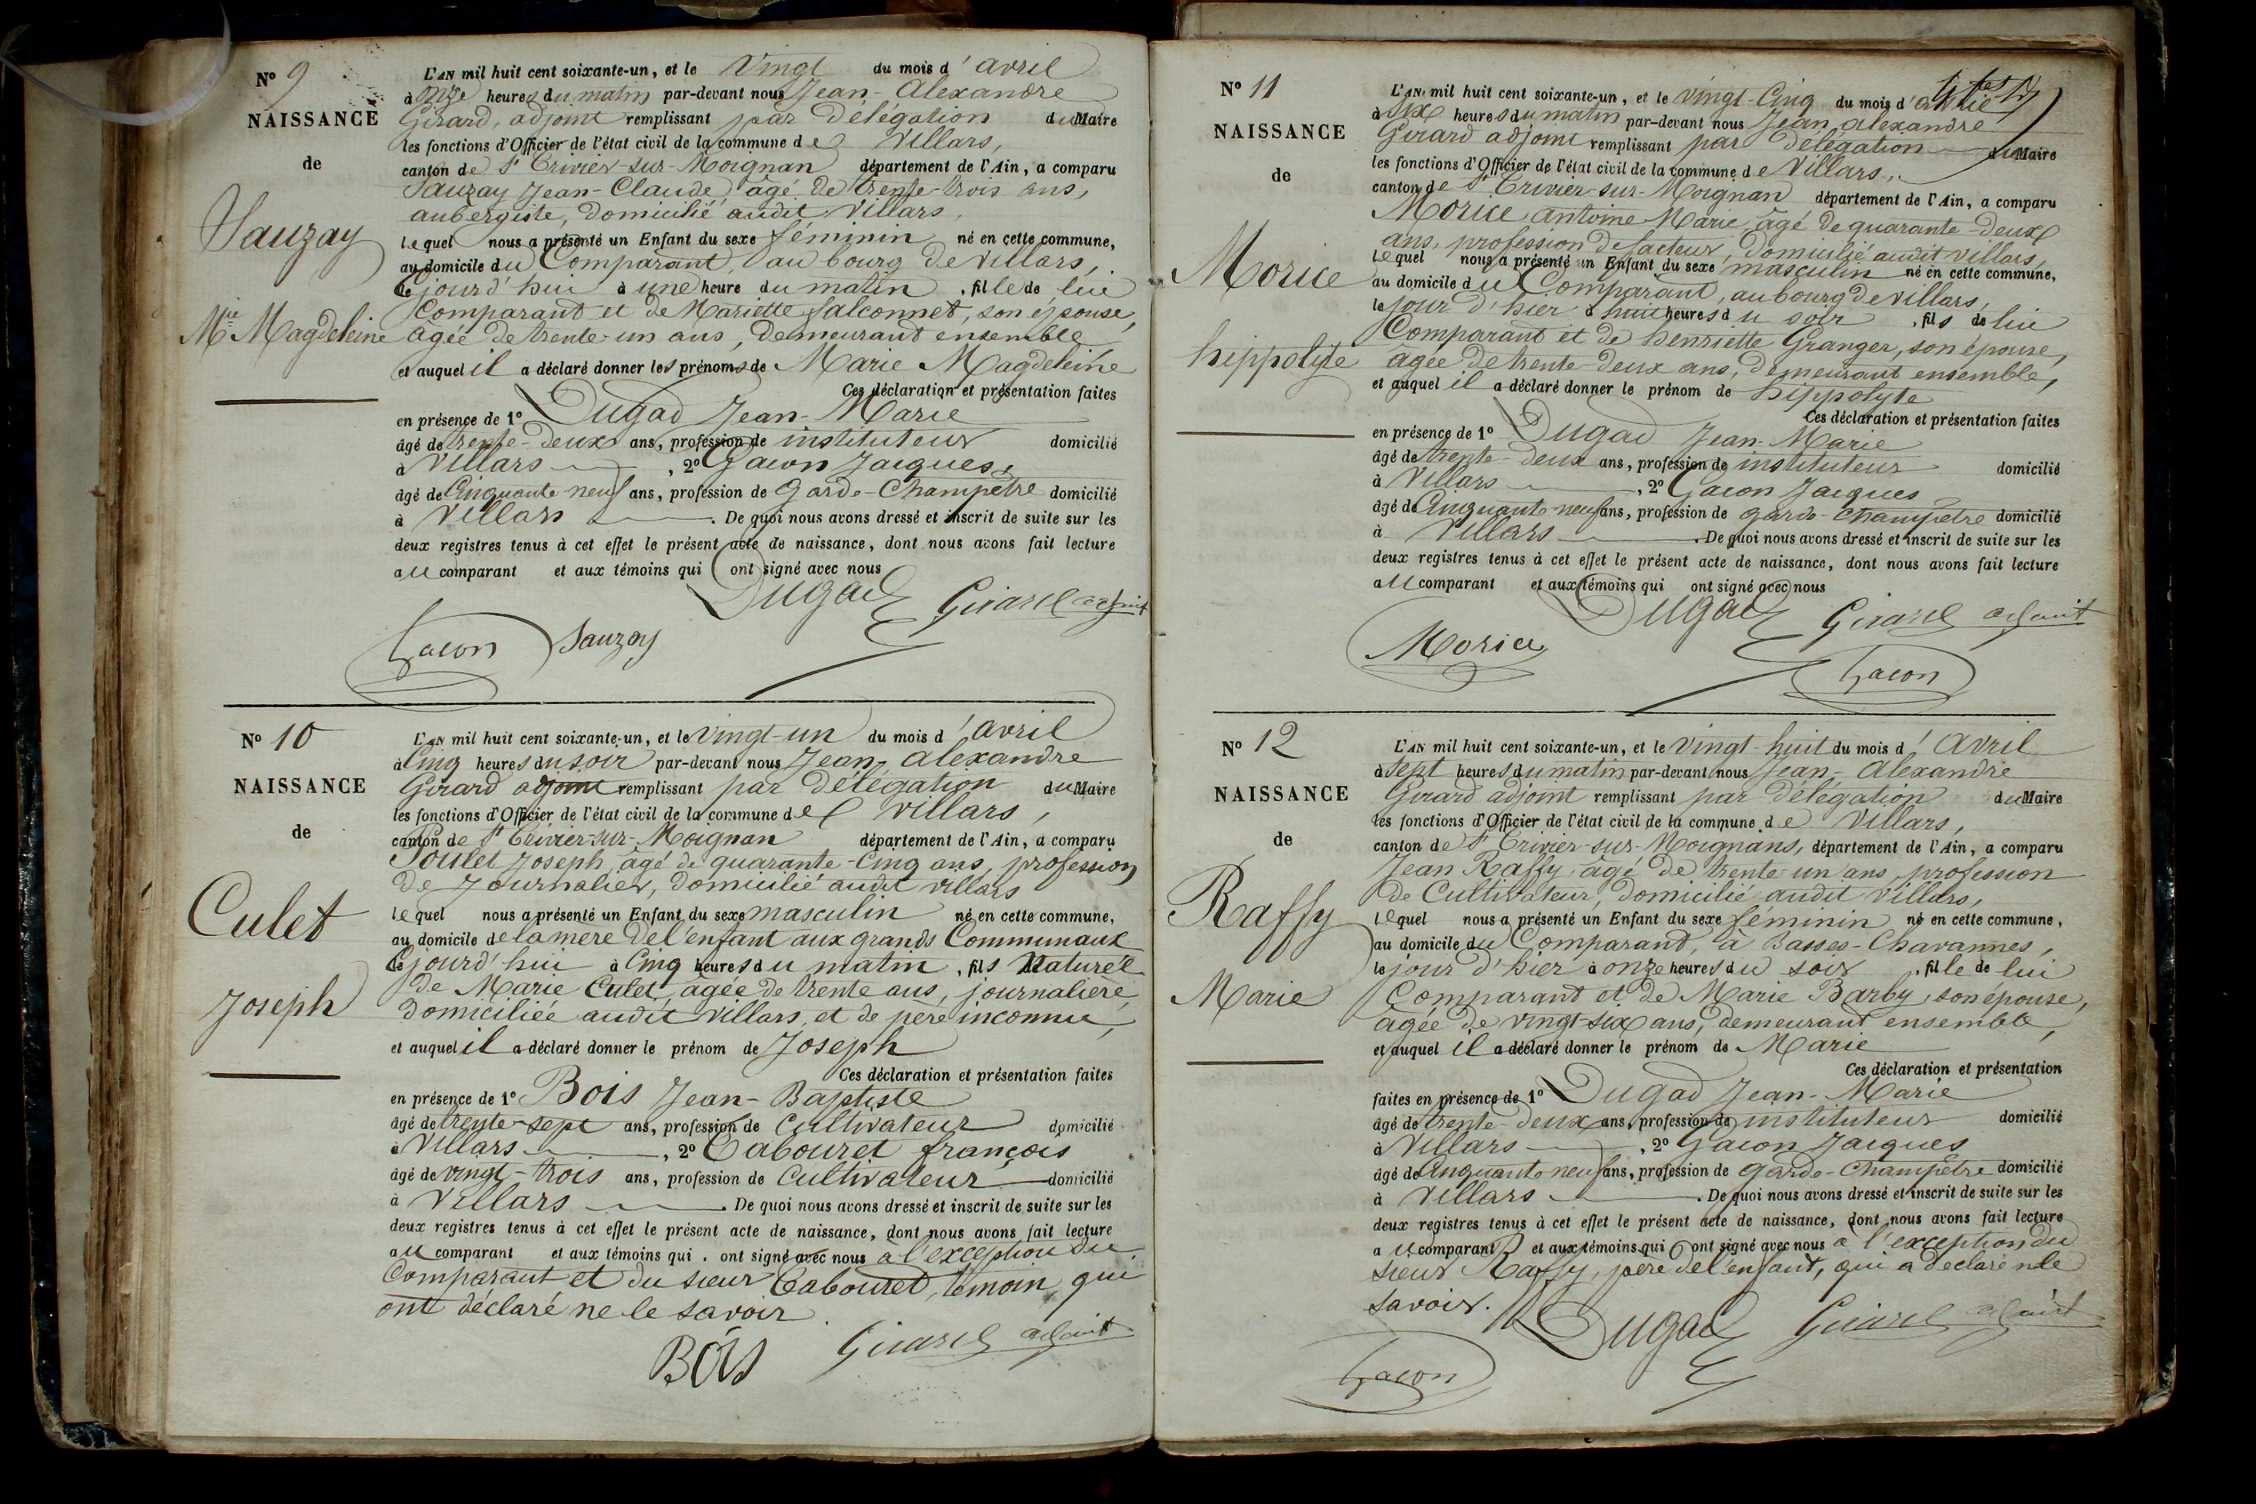 N° 9
NAISSANCE
de
Sauzay
Mie Magdeleine
L'AN mil huit cent soixante-un, et le Vingt du mois d'avril
à onze heures du matin par-devant nous Jean-Alexandre
Girard, adjoint remplissant par délégation du Maire
les fonctions d'Officier de l'état civil de la commune de Villars,
canton de St Trivier-sur-Moignan département de l'Ain, a comparu
Sauzay Jean-Claude, âgé de trente-trois ans,
aubergiste, domicilié audit Villars,
lequel nous a présenté un Enfant du sexe féminin né en cette commune,
au domicile du Comparant, au bourg de Villars,
le jourd'hui à une heure du matin, fille de lui
Comparant et de Mariette falconnet, son épouse,
agée de trente-un ans, demeurant ensemble
et auquel il a déclaré donner les prénoms de Marie Magdeleine
Ces déclaration et présentation faites
en présence de 1° Dugad Jean-Marie
âgé de trente-deux ans, profession de instituteur domicilié
à Villars, 2° Gacon Jacques,
âgé de Cinquante-neuf ans, profession de garde-Champêtre domicilié
à Villars. De quoi nous avons dressé et inscrit de suite sur les
deux registres tenus à cet effet le présent acte de naissance, dont nous avons fait lecture
au comparant et aux témoins qui ont signé avec nous
Dugad Girard adjoint
Gacon Sauzay
N° 10
NAISSANCE
de
Culet
Joseph
L'AN mil huit cent soixante-un, et le vingt-un du mois d'avril
à Cinq heures du soir par-devant nous Jean, Alexandre
Girard adjoint remplissant par délégation du Maire
les fonctions d'Officier de l'état civil de la commune de Villars,
canton de St Trivier-sur-Moignan département de l'Ain, a comparu
Poulet Joseph, âgé de quarante-cinq ans, profession
de Journalier, domicilié audit villars
lequel nous a présenté un Enfant du sexe masculin né en cette commune,
au domicile de la mère de l'enfant aux grands Communaux
le jourd'hui à Cinq heures du matin, fils Naturel
de Marie Culet, agée de trente ans, journalière,
domiciliée audit Villars, et de père inconnu,
et auquel il a déclaré donner le prénom de Joseph
Ces déclaration et présentation faites
en présence de 1° Bois Jean-Baptiste
âgé de trente-sept ans, profession de Cultivateur domicilié
à Villars, 2° Cabouret françois
âgé de vingt-trois ans, profession de cultivateur domicilié
à Villars. De quoi nous avons dressé et inscrit de suite sur les
deux registres tenus à cet effet le présent acte de naissance, dont nous avons fait lecture
au comparant et aux témoins qui ont signé avec nous a l'exception du
Comparant et du sieur Cabouret, témoin, qui
ont déclaré ne le savoir
Bois Girard adjoint
N° 11
NAISSANCE
de
Morice
hippolyte
L'AN mil huit cent soixante-un, et le vingt-Cinq du mois d'avril
à Six heures du matin par-devant nous Jean, alexandre
Girard adjoint remplissant par délégation du Maire
les fonctions d'Officier de l'état civil de la commune de Villars,
canton de St Trivier-sur-Moignan département de l'Ain, a comparu
Morice, antoine-Marie, âgé de quarante-deux
ans, profession de facteur, domicilié audit villars,
lequel nous a présenté un Enfant du sexe masculin né en cette commune,
au domicile du Comparant, au bourg de villars,
le jour d'hier à huit heures du soir, fils de lui
Comparant et de henriette Granger, son épouse,
âgée de trente-deux ans, demeurant ensemble,
et auquel il a déclaré donner le prénom de hippolyte
Ces déclaration et présentation faites
en présence de 1° Dugad Jean-Marie
âgé de trente-deux ans, profession de instituteur domicilié
à Villars, 2° Gacon Jacques
âgé de Cinquante-neuf ans, profession de garde-champêtre domicilié
à Villars. De quoi nous avons dressé et inscrit de suite sur les
deux registres tenus à cet effet le présent acte de naissance, dont nous avons fait lecture
au comparant et aux témoins qui ont signé avec nous
Dugad Girard adjoint
Morice
Gacon
N° 12
NAISSANCE
de
Raffy
Marie
L'AN mil huit cent soixante-un, et le vingt-huit du mois d'Avril
à sept heures du matin par-devant nous Jean-Alexandre
Girard adjoint remplissant par délégation du Maire
les fonctions d'Officier de l'état civil de la commune de Villars,
canton de St Trivier-sur-Moignans, département de l'Ain, a comparu
Jean Raffy, âgé de trente-un ans, profession
de Cultivateur, domicilié audit Villars,
lequel nous a présenté un Enfant du sexe féminin né en cette commune,
au domicile du Comparant, à Basses-Chavannes,
le jour d'hier à onze heures du soir, fille de lui
Comparant et de Marie Barby, son épouse,
agée de vingt-six ans, demeurant ensemble,
et auquel il a déclaré donner le prénom de Marie
Ces déclaration et présentation
faites en présence de 1° Dugad Jean-Marie
âgé de trente-deux ans, profession de instituteur domicilié
à Villars, 2° Gacon Jacques
âgé de Cinquante-neuf ans, profession de garde-Champêtre domicilié
à Villars. De quoi nous avons dressé et inscrit de suite sur les
deux registres tenus à cet effet le présent acte de naissance, dont nous avons fait lecture
au comparant et aux témoins qui ont signé avec nous a l'exception du
sieur Raffy, père de l'enfant, qui a déclaré ne le
savoir.
Dugad Girard adjoint
Gacon